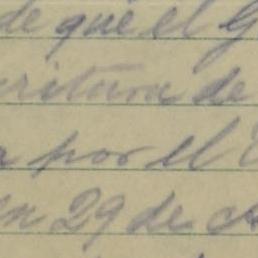 de que el G
critura de
a por el E
en 29 de A